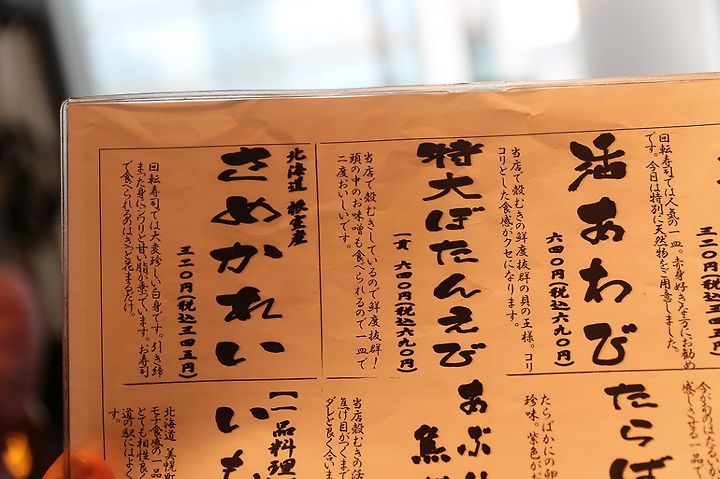 回転寿司では人気の一皿。赤身好きな方にお勧め
です。今日は特別に天然物をご用意しました。
活あわび
六四〇円(税込六九〇円)
当店で殻むきの鮮度抜群の貝の王様。コリ
コリとした食感がクセになります。
特大ぼたんえび
一本 六四〇円(税込六九〇円)
当店で殻むきしているので鮮度抜群!
頭の中のお味噌も食べられるので一皿で
二度おいしいです。
北海道 根室産
さめかれい
三二〇円(税込三四五円)
回転寿司では大変珍しい白身です。引き締
まった身にジワリと甘い脂が乗っています。お寿司
で食べられるのはきっと花まるだけ。
今が旬のほたるいか
感じさせる一品で
たらば
たらばかにの卵
珍味。紫色が
あぶり
焦
当店殻むきの活
焦げ目がつくまで
ダレと良く合いま
【一品料理
いも
北海道 美幌町
モチ食感の一品
とても相性良
道の駅にはよく
す。